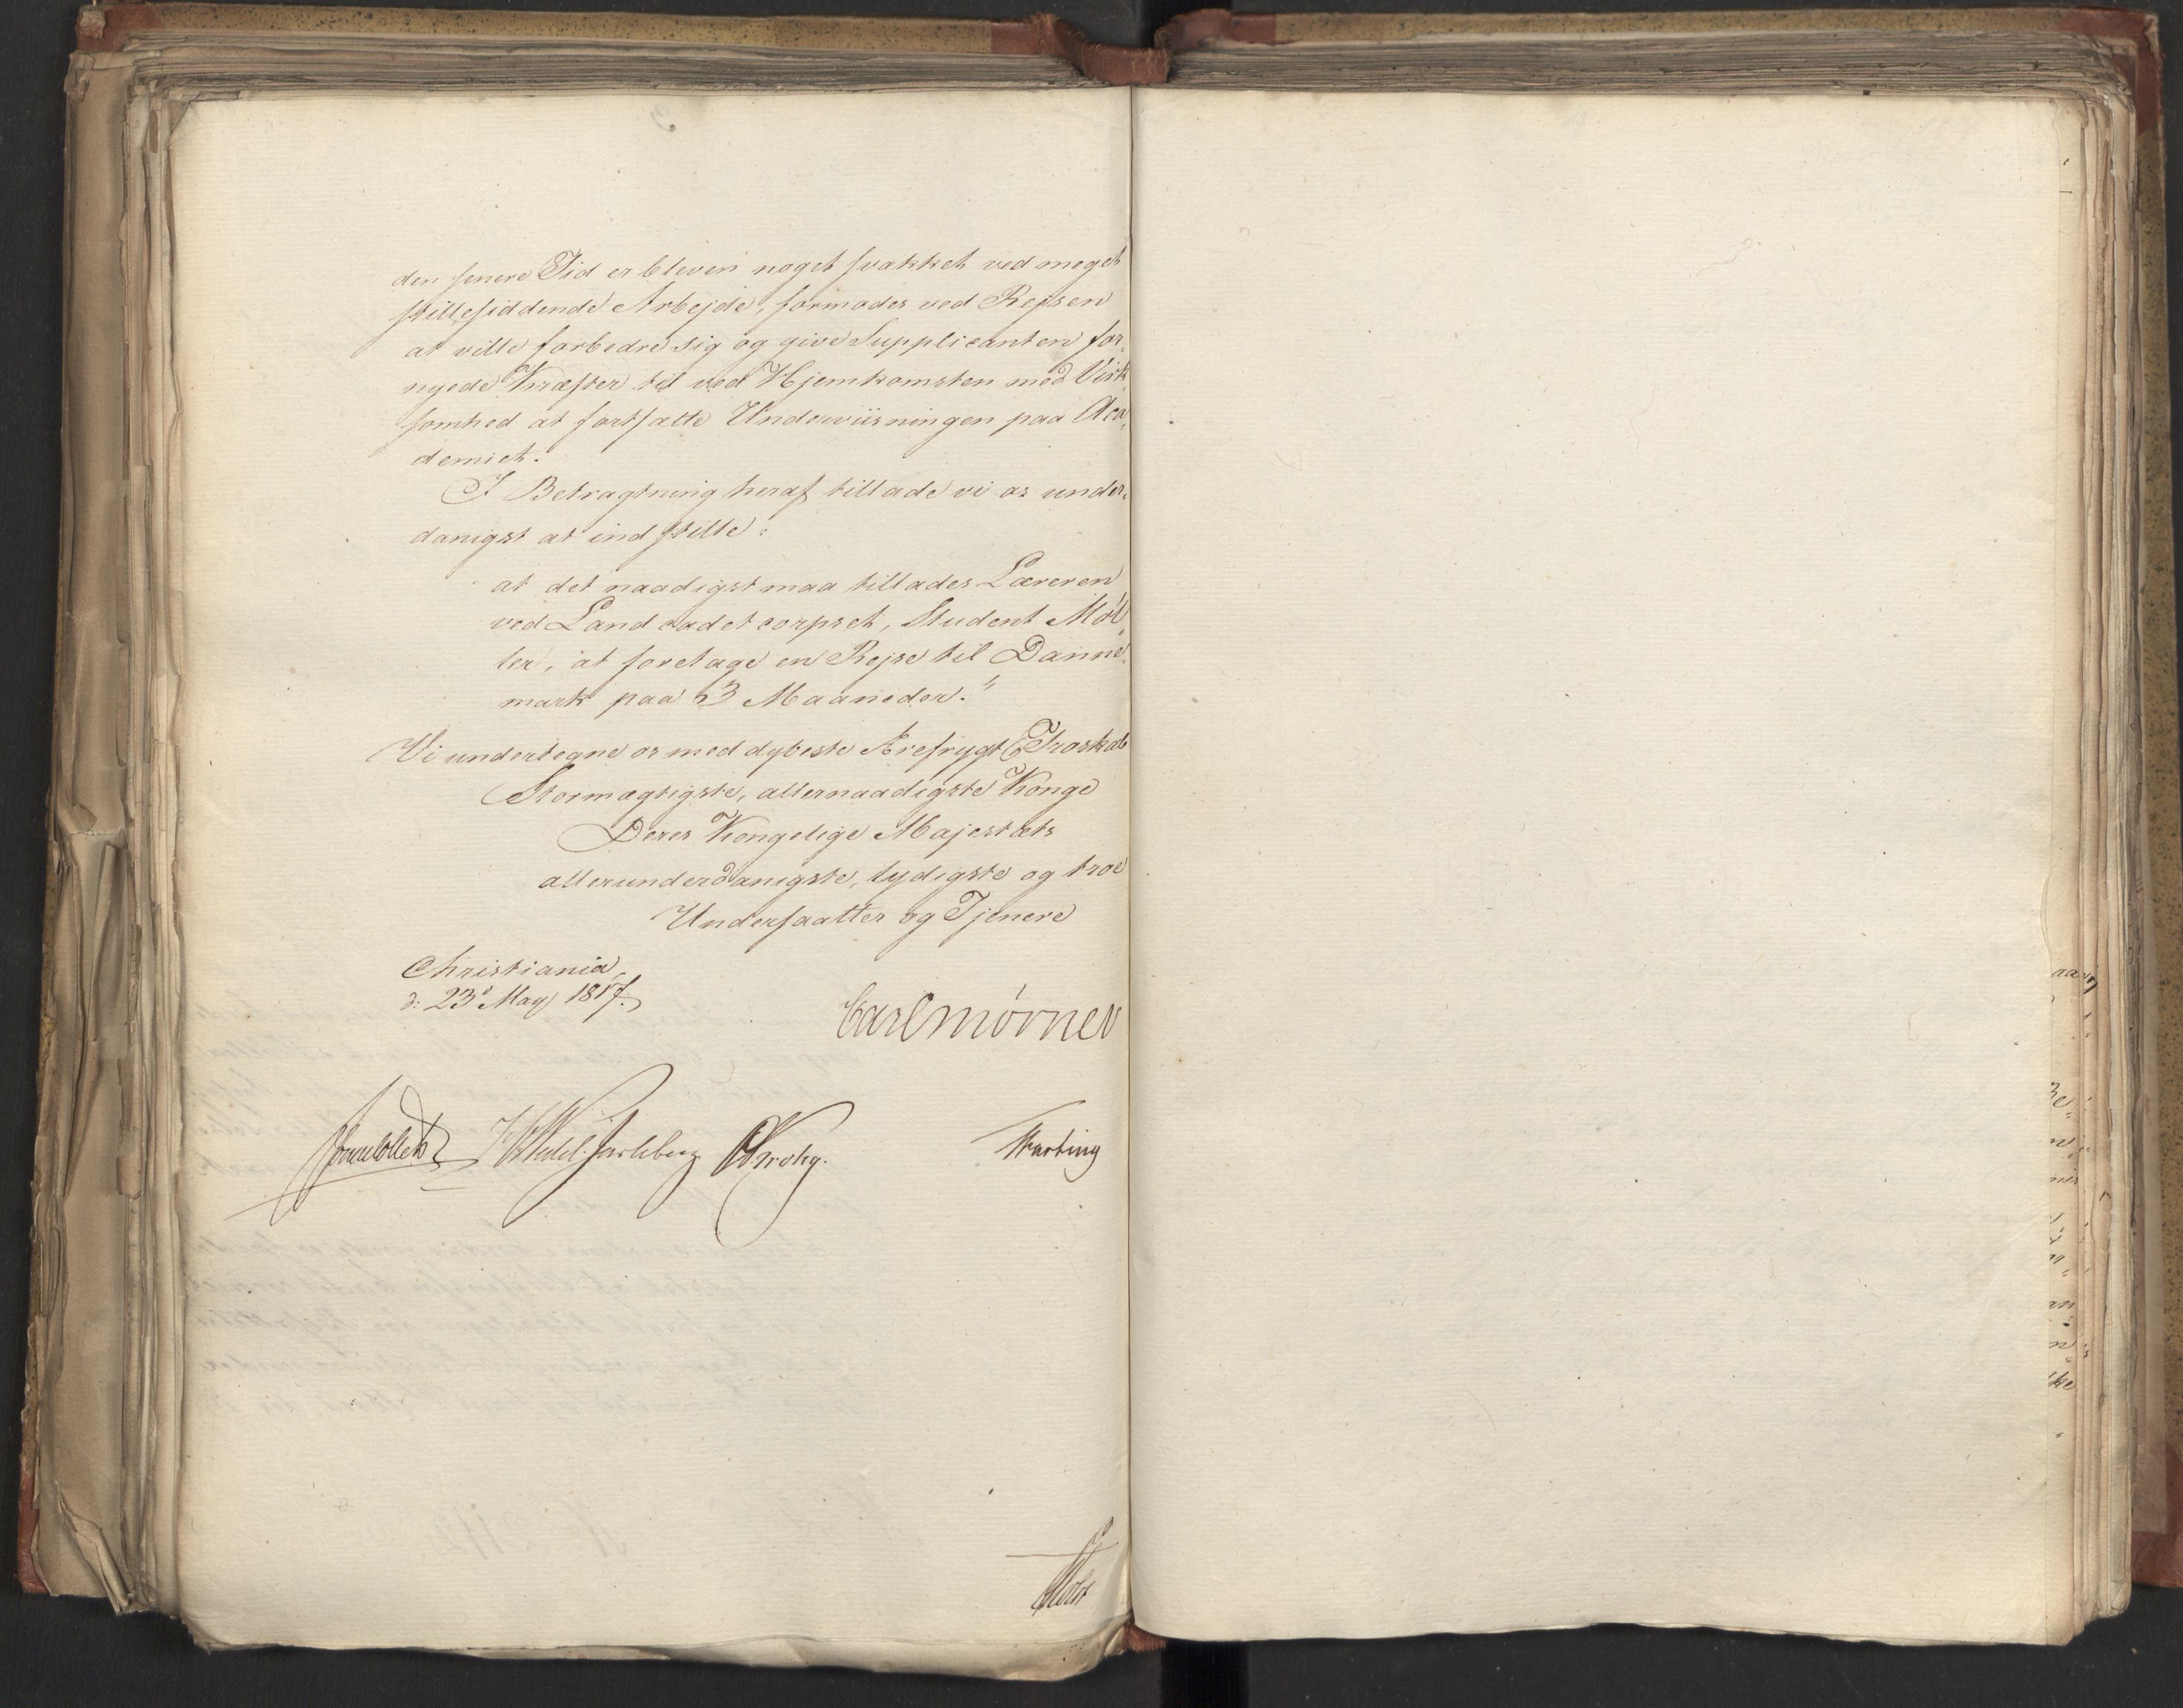 den senere Tid er bleven noget svækket ved meget
stillesiddende Arbejde, formodes ved Rejsen
at ville forbedre sig og give Supplicanten for„
nyede Kræfter til ved Hjemkomsten med Virk„
somhed at fortsætte Underviisningen paa Aca„
demiet.
I Betragtning heraf tillade vi os under„
danigst at indstille:
at det naadigst maa tillades Læreren
ved Landcadetcorpset, Student Møl„
ler, at foretage en Rejse til Danne„
mark paa 3 Maaneder."
Vi undertegne os med dybeste Ærefrygt & Troskab
Stormægtigste, allernaadigste Konge
Deres Kongelige Majestæts
allerunderdanigste, lydigste og troe
Undersaatter og Tjenere
Christiania,
d: 23d May 1817.
Carl Mörner
Jonas Collett HWedel-Jarlsberg CKrohg.
Harbing
Holst